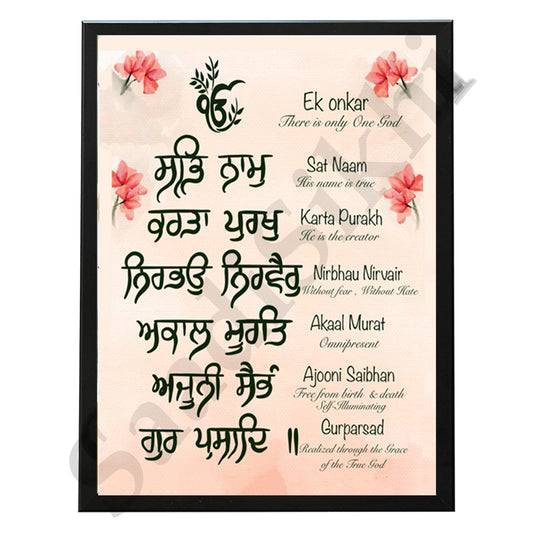 ੴ
Ek onkar
There is only One God
ਸਤਿ ਨਾਮੁ
Sat Naam
His name is true
ਕਰਤਾ ਪੁਰਖੁ
Karta Purakh
He is the creator
ਨਿਰਭਉ ਨਿਰਵੈਰੁ
Nirbhau Nirvair
Without fear , Without Hate
ਅਕਾਲ ਮੂਰਤਿ
Akaal Murat
Omnipresent
ਅਜੂਨੀ ਸੈਭੰ
Ajooni Saibhan
Free from birth & death
Self-Illuminating
ਗੁਰ ਪ੍ਰਸਾਦਿ ॥
Gurparsad
Realized through the Grace
of the True God
SandhSikhi